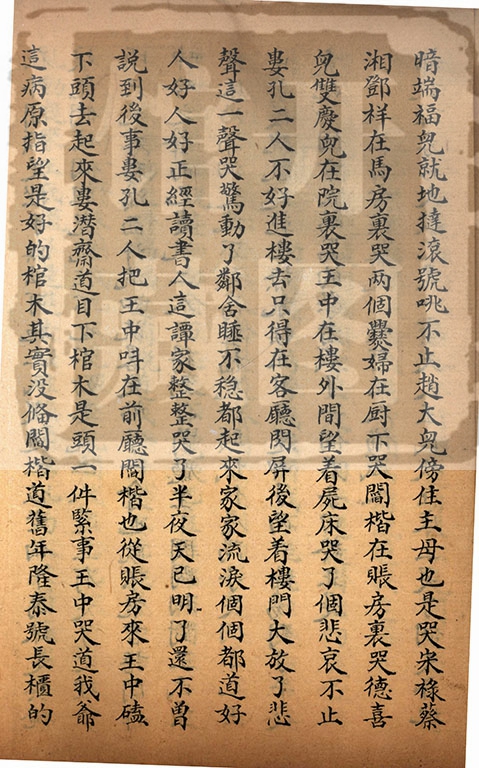 暗端福兒就地撻滾號咷不止趙大兒傍住主母也是哭宋祿蔡
湘鄧祥在馬房裏哭两個爨婦在厨下哭閻楷在賬房裏哭德喜
兒雙慶兒在院裏哭王中在樓外間望着屍床哭了個悲哀不止
婁孔二人不好進樓去只得在客廳閃屏後望着樓門大放了悲
聲這一聲哭驚動了鄰舍睡不稳都起來家家流淚個個都道好
人好人好正經讀書人這譚家整整哭了半夜天已明了還不曾
説到後事婁孔二人把王中呌在前廳閻楷也從賬房來王中磕
下頭去起來婁潜齋道目下棺木是頭一件緊事王中哭道我爺
這病原指望是好的棺木其實没俻閻楷道舊年隆泰號長櫃的